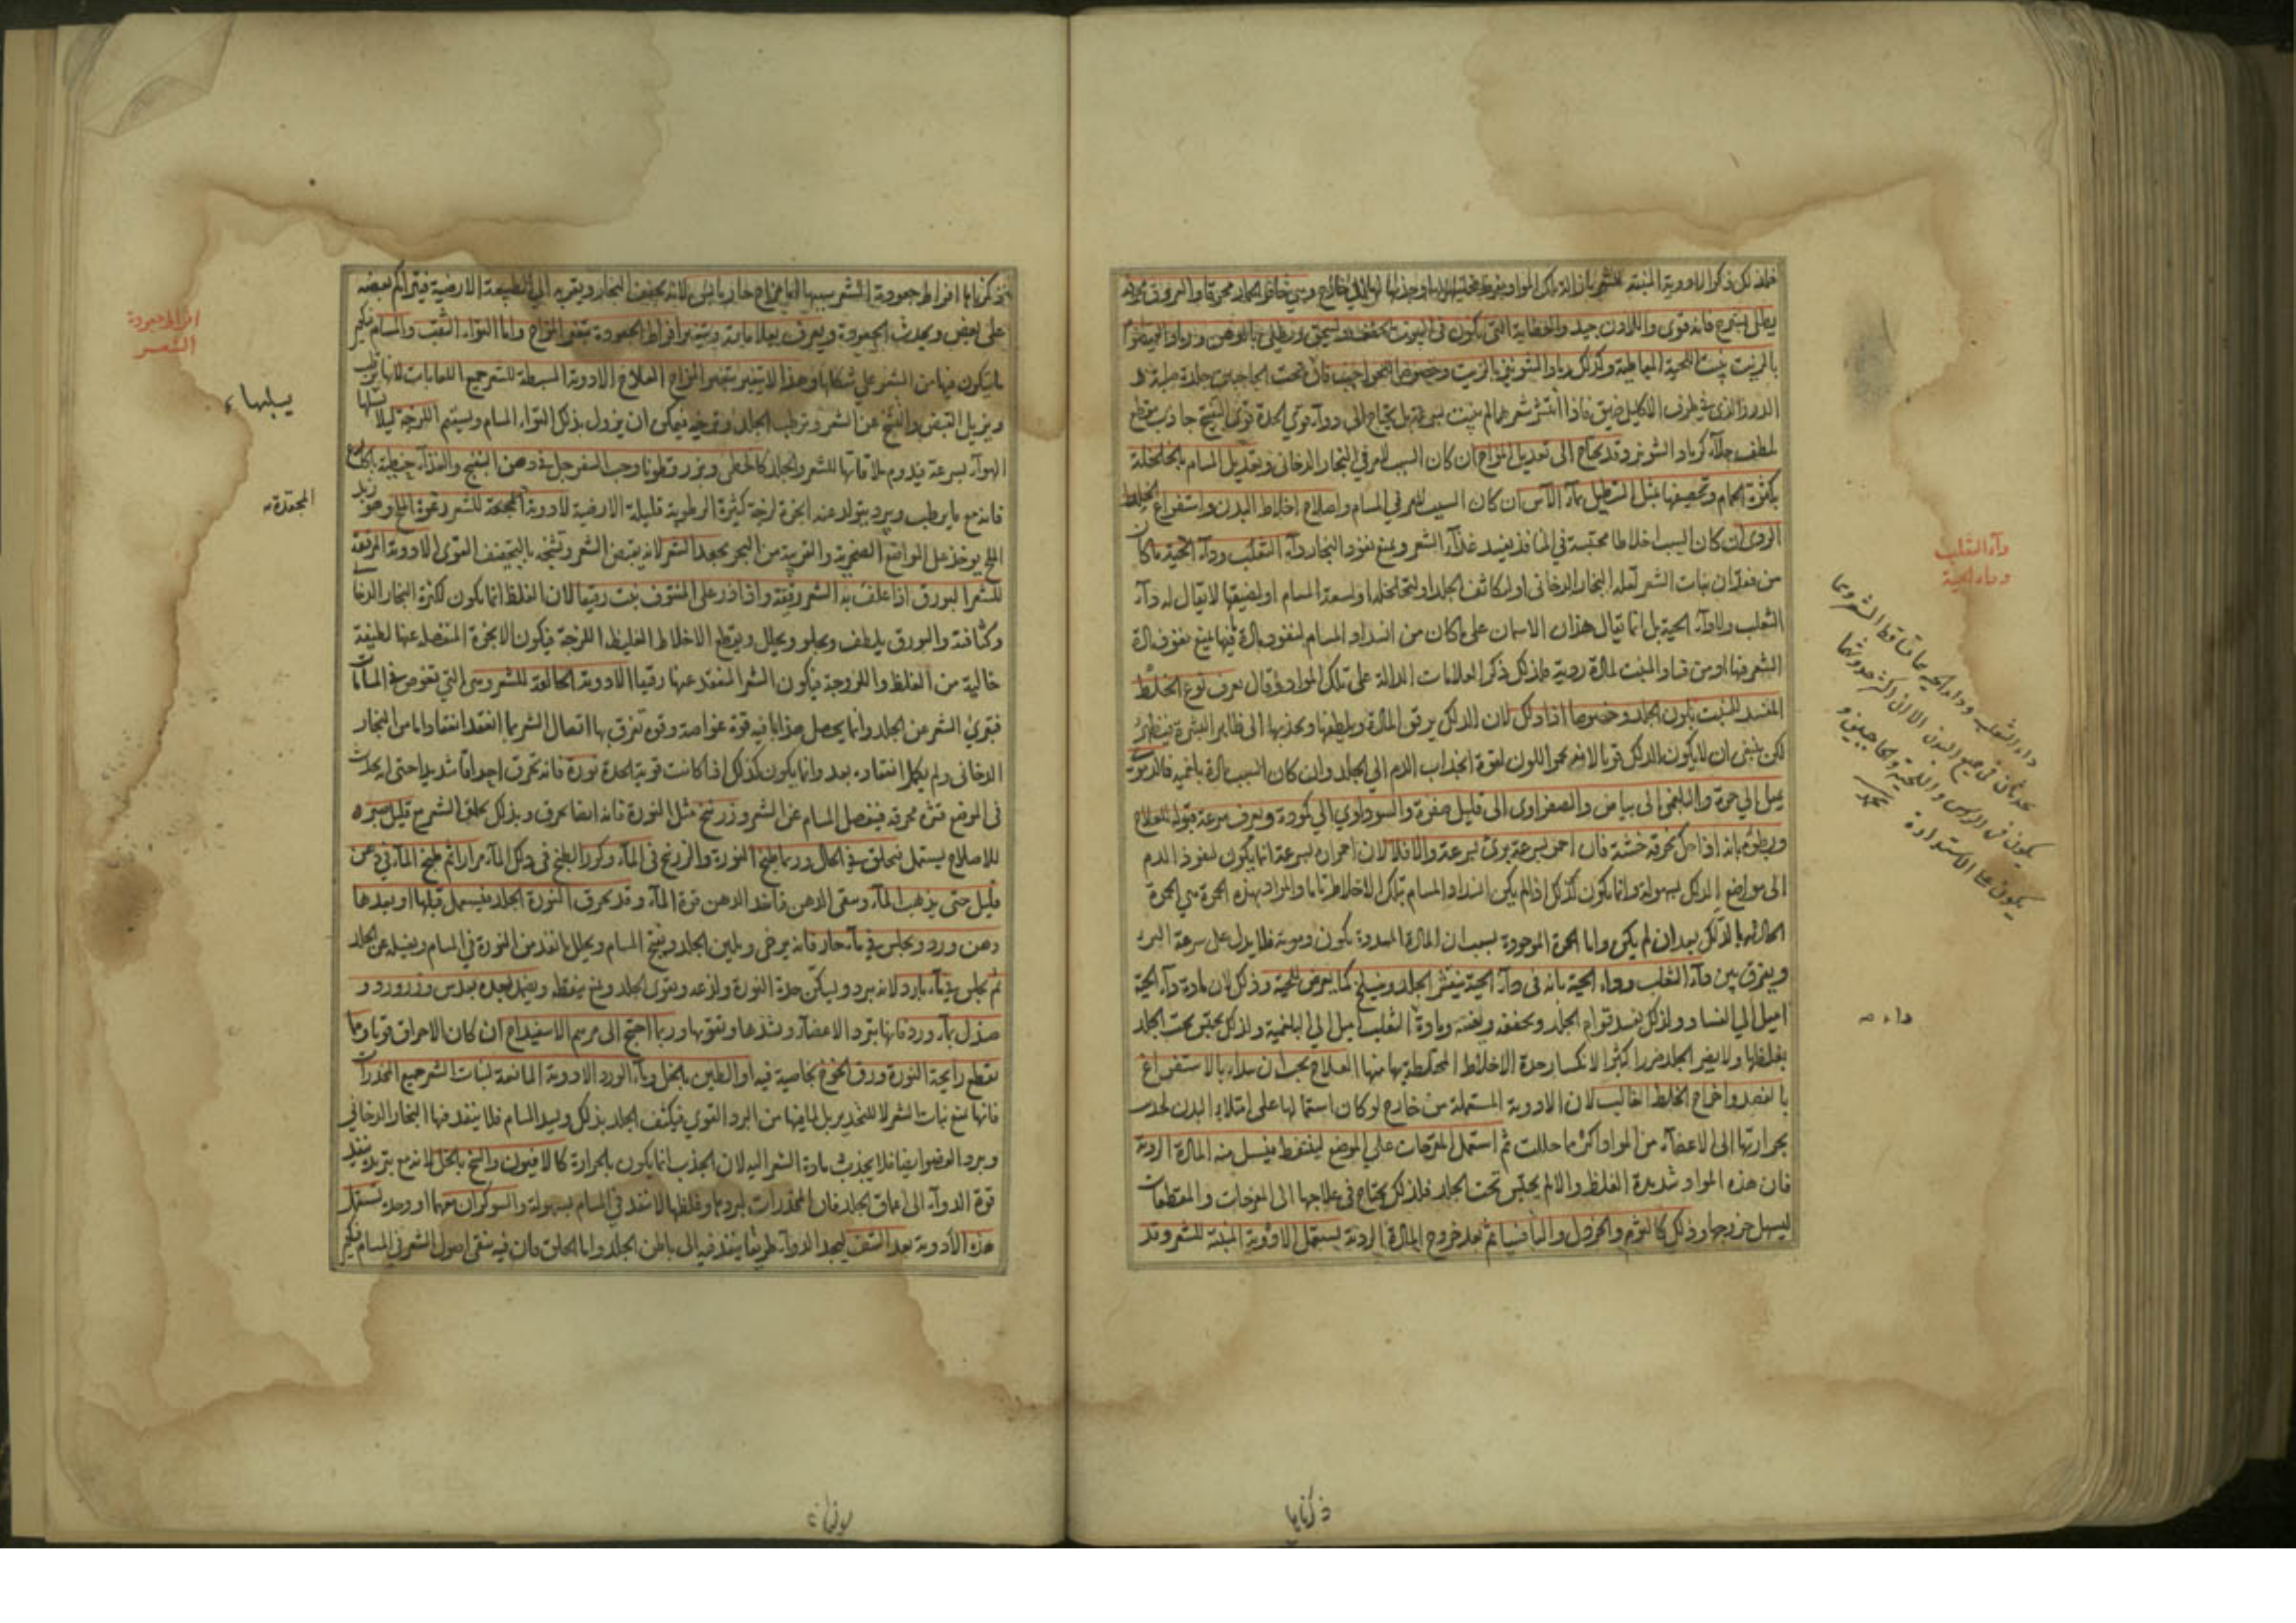 يطلى بشيرج فانه قوى واللادن جيد والعظاية التى تكون فى البيوت تجفف وتسحق ويطلى بالدهن
بالزيت ينبت اللحية المتباطية وكذلك رماد الشونيز بالزيت وخصوصا للحواجب فان تحت الحاجبين جلدة صلبة
الدرز الذى فى طرف الاكليل ضيق فاذا انتثر شعرهما لم ينبت بسرعة بل يحتاج الى دوآء قوى الحدة
ملطف جلآء كرماد الشونيز وقد يحتاج الى تعديل المزاج ان كان السبب للمرض فى البخار الدخانى وتعديل المسام بالخلخلة
بكثرة الحمام وتحصيفها بمثل التنطيل بمآء الآس ان كان السبب للمرض فى المسام واصلاح اخلاط البدن واستفراغ الخلط
الردى ان كان السبب اخلاطا محتبسة فى المنافذ يفسد غذآء الشعر ويمنع نفوذ البخار دآء الثعلب ودآء الحية ما كان
من فقدان نبات الشعر لقلة البخار الدخانى او لتكاثف الجلد او لتخلخله او لسعة المسام او لضيقها لا يقال له دآء
الثعلب ولا دآء الحية بل انما يقال هذان الاسمان على ما كان من انسداد المسام لنفوذ مادة فيها يمنع نفوذ مادة
الشعر فيها او من فساد المنبت لمادة ردية فلذلك ذكر العلامات الدالة على تلك المواد وقال يعرف نوع الخلط
المفسد للمنبت بلون الجلد وخصوصا اذا دلك لان الدلك يرقق المادة ويلطفها ويجذبها الى ظاهر البشرة فيظهر
لكن ينبغى ان لا يكون الدلك قويا لانه يحمر اللون لقوة انجذاب الدم الى الجلد وان كان السبب مادة بلغمية فالدموى
يميل الى حمرة والبلغمى الى بياض والصفراوى الى قليل صفرة والسوداوى الى كمودة ويعرف سرعة قبوله للعلاج
وبطؤه بانه اذا دلك بخرقة خشنة فان احمر بسرعة برئ بسرعة والا فلا لان احمراره بسرعة انما يكون لنفوذ الدم
الى مواضع الدلك بسهولة وانما يكون كذلك اذا لم يكن انسداد المسام بتلك الاخلاط تاما والمراد بهذه الحمرة هى الحمرة
الحادثة بالدلك بعد ان لم يكن واما الحمرة الموجودة بسبب ان المادة المسددة تكون دموية فلا يدل على سرعة البرء
ويفرق بين دآء الثعلب ودآء الحية بانه فى دآء الحية يتقشر الجلد وينسلخ كما يعرض للحية وذلك لان مادة دآء الحية
اميل الى الفساد ولذلك يفسد قوام الجلد ويجففه ويقشره ومادة الثعلب اميل الى البلغمية ولذلك يحتبس تحت الجلد
بغلظها ولا يضر الجلد ضررا كثيرا لانكسار حدة الاخلاط المختلطة بها منها العلاج يجب ان يبدأ بالاستفراغ
بالفصد واخراج الخلط الغالب لان الادوية المستعملة من خارج لو كان استعمالها على امتلاء البدن
بحرارتها الى الاعضآء من المواد اكثر ما حللت ثم استعمل المقرحات على الموضع ليتنفط فيسيل منه المادة الردية
فان هذه المواد شديدة الغلظ والا لم يحتبس تحت الجلد فلذلك يحتاج فى علاجها الى المقرحات والمقطعات
ليسهل خروجها وذلك كالثوم والخردل والثافسيا ثم بعد خروج المادة الردية يستعمل الادوية المنبتة للشعر وقد
دآء الثعلب
ودآء الحية
داء الثعلب وداء الحية هما تساقط الشعر
يحدثان فى جميع البدن الا ان اكثر حدوثهما
يكون فى الرأس واللحية والحاجبين و
يكون على الاستدارة
داء
ذكرنا ما
ذكرنا ما افراط جعودة الشعر سببها اما مزاج حار يابس لانه يجفف البخار ويقربه الى الطبيعة الارضية فيتراكم بعضه
على بعض ويحدث الجعودة ويعرف بعلاماته ويتغير افراط الجعودة بتغير المزاج واما التواء الثقب والمسام
ما يتكون فيها من الشعر على شكلها وهذا لا يتغير بتغير المزاج العلاج الادوية المبسطة للشعر جميع اللعابات لانها يرطب
ويزيل القبض والتشنج عن الشعر ويرطب الجلد وترخيه فيمكن ان يزول بذلك التواء المسام
الهوآء بسرعة فيدوم ملاقاتها للشعر والجلد كالخطمى وبزر قطونا وحب السفرجل فى دهن البنفسج والغذآء
فانه مع ما يرطب ويبرد يتولد عنه ابخرة لزجة كثيرة الرطوبة قليلة الارضية الادوية المجعدة للشعر رغوة الملح وهو زبد
الملح يوخذ على المواضع الصخرية والقريبة من البحر يجعد الشعر لانه يقبض الشعر وتشنجه بالتجفيف القوى الادوية المرققة
للشعر البورق اذا غلف به الشعر رققه واذا ذر على المنتوف نبت رقيقا لان الغلظ انما يكون لكثرة البخار الدخانى
وكثافته والبورق يلطف ويجلو ويحلل ويقطع الاخلاط الغليظة اللزجة فيكون الابخرة المنفصلة عنها لطيفة
خالية من الغلظ واللزوجة فيكون الشعر المنعقد عنها رقيقا الادوية الحالقة للشعر وهى التى تغوص فى المسامات
فتبرئ الشعر عن الجلد وانما يحصل هذا بما فيه قوة غواصة وقوة تفرق بها اتصال الشعر بما انعقد انعقادا ما من البخار
الدخانى ولم يكمل انعقاده بعد وانما يكون كذلك اذا كانت قوية الحدة نورة فانه تحرق احراقا شديدا حتى انه يحدث
فى الموضع قشرة محرقة فينفصل المسام عن الشعر وزرنيخ مثل النورة فانه ايضا يحرق وبذلك يحلق الشعر مع قليل صبره
للاصلاح يستعمل فيحلق فى الحال وربما طبخ النورة والزرنيخ فى المآء وكرر الطبخ فى ذلك المآء مرارا ثم طبخ المآء فى دهن
قليل حتى يذهب المآء ويبقى الدهن فاخذ الدهن قوة المآء وقد يحرق النورة الجلد فيستعمل قبلها او بعدها
دهن ورد ويجلس فى مآء حار فانه يرخى ويلين الجلد ويفتح المسام ويحلل ما نفذ من النورة فى المسام ويغسله عن الجلد
ثم يجلس فى مآء بارد لانه يبرد ويسكن حدة النورة ولذعه ويقوى الجلد ويمنع تنفطه ويطلى بعده بعدس وورد و
صندل بمآء ورد فانها يبرد الاعضآء ويشدها ويقويها وربما احتيج الى مرهم الاسفيداج ان كان الاحراق قويا ومما
يقطع رايحة النورة ورق الخوخ بخاصية فيه او الطين بالخل ومآء الورد الادوية المانعة لنبات الشعر جميع المخدرات
فانها تمنع نبات الشعر لا للتخدير بل لما فيها من البرد القوى فيكثف الجلد بذلك ويسد المسام فلا ينفذ فيها البخار الدخانى
ويبرد العضو ايضا فلا يجذب مادة الشعر اليه لان الجذب انما يكون بالحرارة كالافيون والبنج بالخل لانه مع تبريده ينفذ
قوة الدوآء الى اعماق الجلد فان المخدرات لبردها وغلظها لا تنفذ فى المسام بسهولة والشوكران معهما او وحده تستعمل
هذه الادوية بعد النتف ليجد الدوآء طريقا ينفذ فيه الى باطن الجلد واما الحلق فان فيه يبقى اصول الشعر فى المسام
افراط جعودة
الشعر
يسيلها
المجعدة